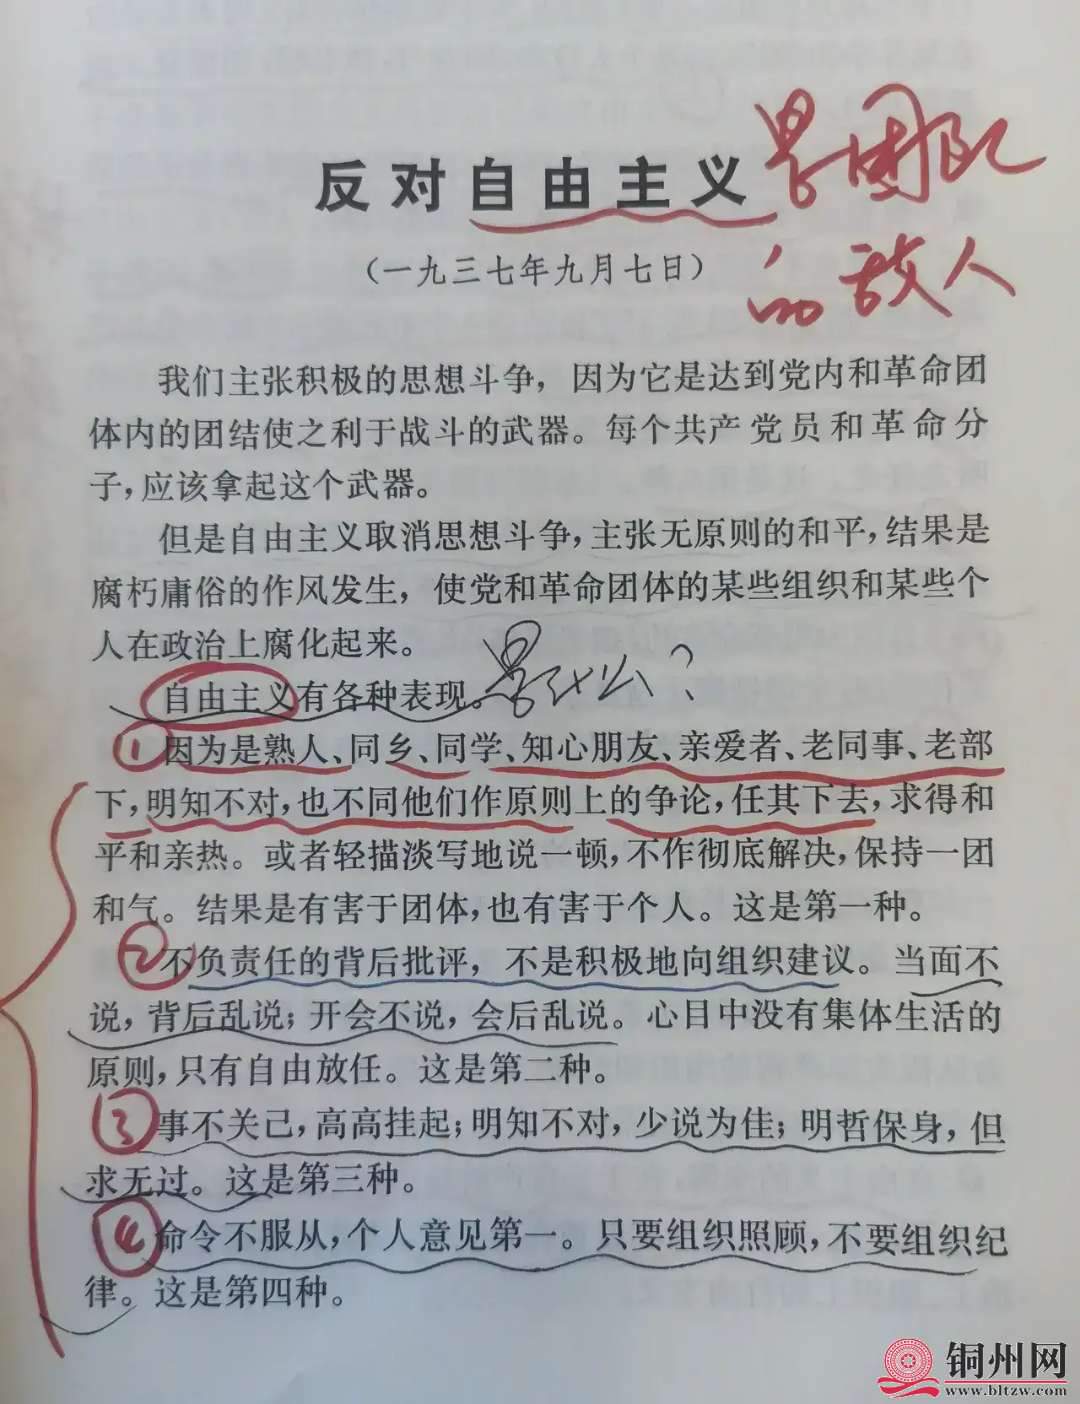 反对自由主义 是团队
的敌人
（一九三七年九月七日）
我们主张积极的思想斗争，因为它是达到党内和革命团
体内的团结使之利于战斗的武器。每个共产党员和革命分
子，应该拿起这个武器。
但是自由主义取消思想斗争，主张无原则的和平，结果是
腐朽庸俗的作风发生，使党和革命团体的某些组织和某些个
人在政治上腐化起来。
自由主义有各种表现。是什么？
①因为是熟人、同乡、同学、知心朋友、亲爱者、老同事、老部
下，明知不对，也不同他们作原则上的争论，任其下去，求得和
平和亲热。或者轻描淡写地说一顿，不作彻底解决，保持一团
和气。结果是有害于团体，也有害于个人。这是第一种。
②不负责任的背后批评，不是积极地向组织建议。当面不
说，背后乱说；开会不说，会后乱说。心目中没有集体生活的
原则，只有自由放任。这是第二种。
③事不关己，高高挂起；明知不对，少说为佳；明哲保身，但
求无过。这是第三种。
④命令不服从，个人意见第一。只要组织照顾，不要组织纪
律。这是第四种。
铜州网
www.bltzw.com